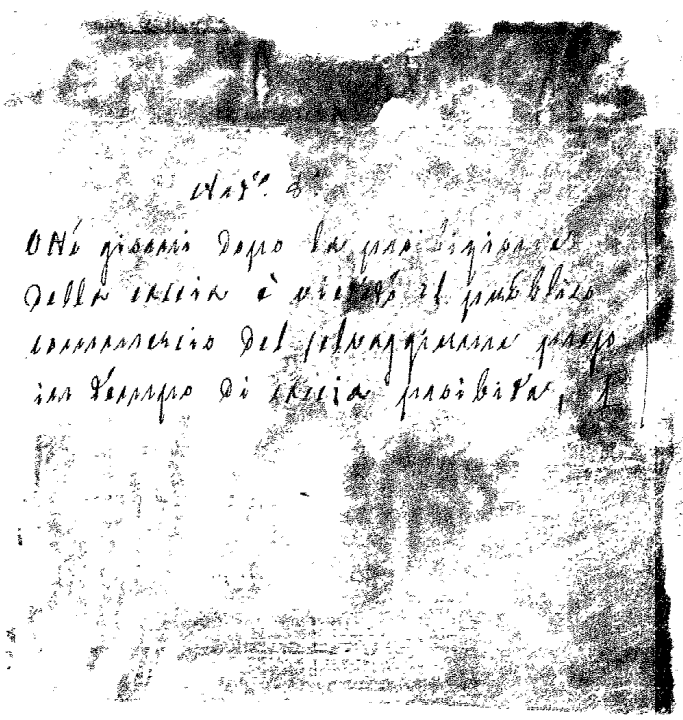 Art.º 8.
Otto giorni dopo la proibizione
della caccia è vietato il pubblico
commercio del selvaggiume preso
in tempo di caccia proibita,